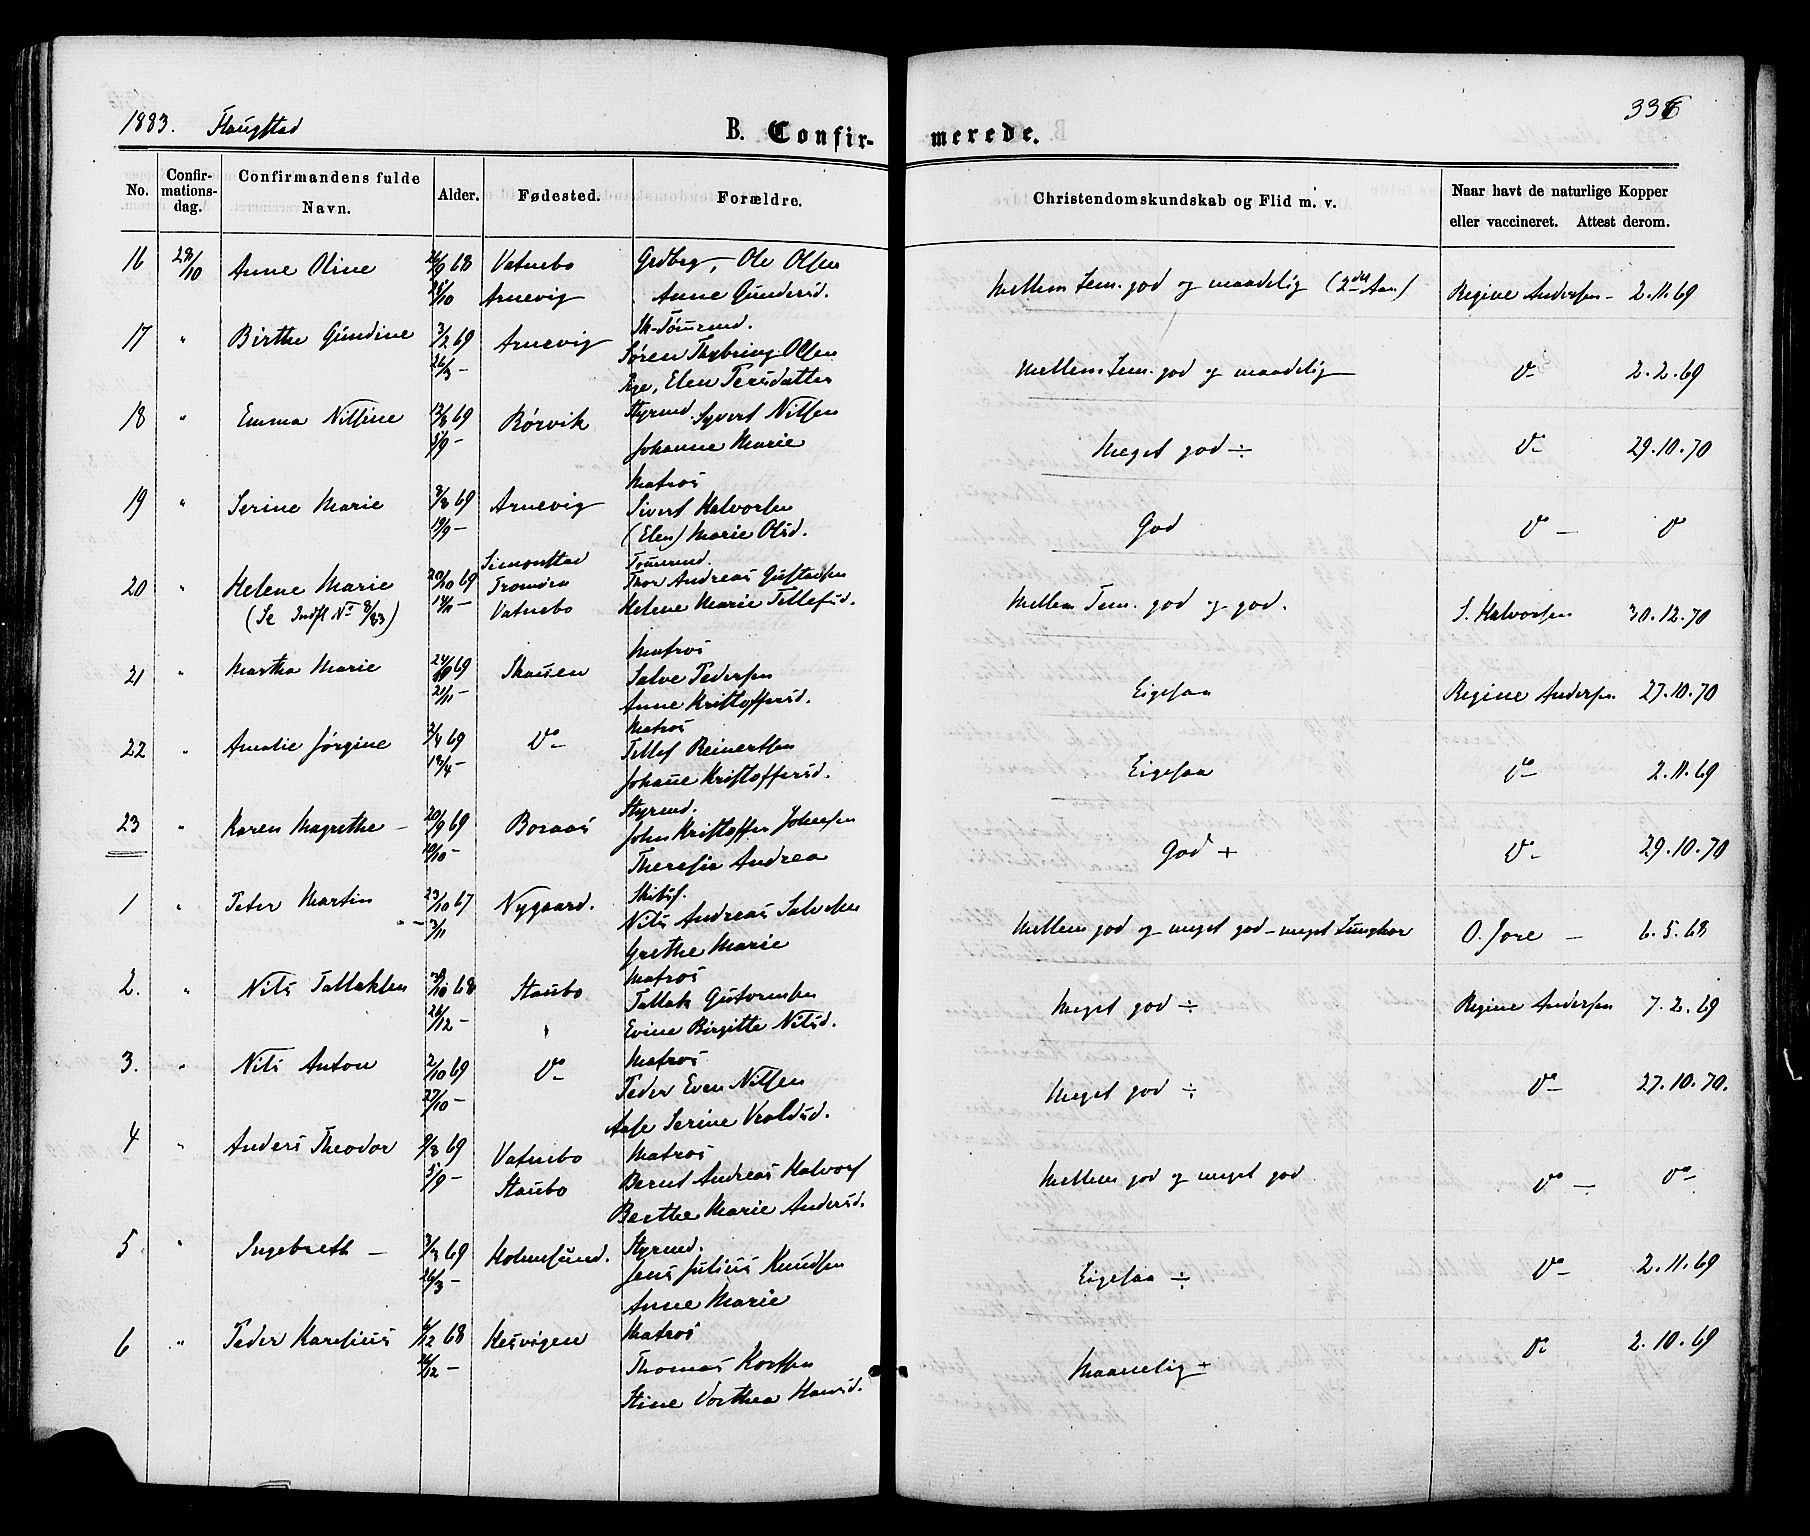 1883. Flangstad
B. Confirmerede.
336
No.
Confirmationsdag.
Confirmandens fulde Navn.
Alder.
Fødested.
Forældre.
Christendomskundskab og Flid m. v.
Naar havt de naturlige Kopper eller vaccineret. Attest derom.
16 Anne Oline 68 Vatnebo Grdbrg, Ole Olsen
Arnevig Anne Gundersd.
Mellem Tem. god og maadelig Regine Andersen 2.11.69
17 " Birthe Gundine 3/2 69 Arnevig Sk-Tømrmd.
26/3 – Søren Thybring Olsen
Elen Persdatter
Mellem Tem. god og maadelig Do 2.2.69
18 " Emma Nilsine 69 Rørvik Styrmd. Syvert Nilsen
5/9 – Johanne Marie
Meget god ÷ Do 29.10.70
19 " Serine Marie 69 Arnevig Matros
19/9 – Sivert Halvorsen
(Elen) Marie Olsd.
God Do – Do
20 " Helene Marie 20/10 69 Simonstad Tømrmd.
(Se Indfl No 8/83) Tromøen Thor Andreas Gustavsen
Vatnebo Helene Marie Tellefsd.
Mellem Tem. god og god. S. Halvorsen 30.12.70
21 " Martha Marie 69 Skousen Matros
21/11 – Salve Pedersen
Anne Kristoffersd.
Eigesaa Regine Andersen 27.10.70
22 " Amalie Jørgine 3/4 69 Do Matros
18/4 – Tellef Reinertsen
Johanne Kristoffersd.
Eigesaa Do 2.11.69
23 " Karen Magrethe – 20/9 69 Boraas Styrmd.
10/10 – John Kristoffer Johnsen
Theresie Andrea
God + Do 29.10.70
1 " Peder Martin 23/10 67 Nygaard. Skibsf.
3/11 Nils Andreas Salvesen
Grethe Marie
Mellem god og meget god – meget tunghør O. Jore – 6.5.68
2. " Nils Tallaksen 68 Staubo Matros
26/12 – Tallak Guttormsen
Evine Birgitte Nilsd.
Meget god ÷ Regine Andersen 7.2.69
3. " Nils Anton 2/10 69 Do Matros
27/10 – Peder Even Nilsen
Aase Serine Vraldsd.
Meget god ÷ Do 27.10.70.
4 " Anders Theodor 69 Vatnebo Matros
5/9 – Staubo Bernt Andreas Halvors
Berthe Marie Andersd.
Mellem god og meget god. Do – Do
5. " Ingebreth – 69 Holmesund. Styrmd.
26/3 – Jens Julius Knudsen
Anne Marie
Eigesaa ÷ Do 2.11.69
6 " Peder Karelius 6/12 68 Hesvigen Matros
26/12 – Thomas Korssen
Stine Dorthea Hansd.
Maadelig + Do 2.10.69